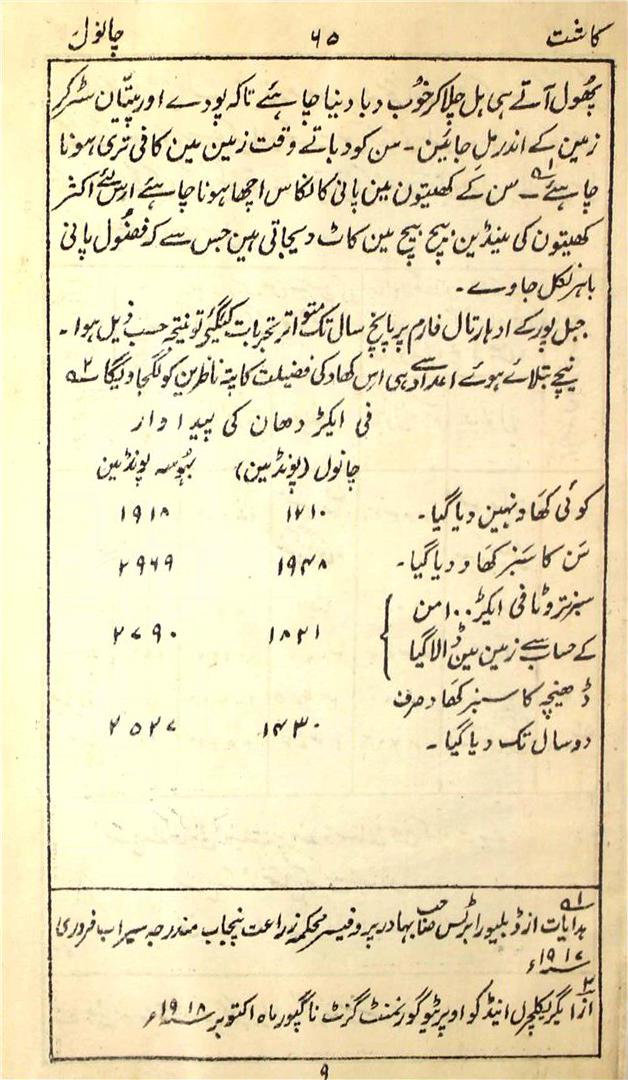 کاشت ۶۵ چانول
پھول آتے ہی ہل چلا کر خوب دبا دینا چاہئے تاکہ پودے اور پتیان سڑکر
زمین کے اندر مل جائین۔ سن کو دباتے وقت زمین مین کافی تری ہونا
چاہئے ؁۱۔ سن کے کھیتون مین پانی کا نکاس اچھا ہونا چاہئے اس لئے اکثر
کھیتون کی مینڈین بیچ بیچ مین کاٹ دیجاتی ہین جس سے کہ فضول پانی
باہر نکل جاوے۔
جبل پور کے ادہارتال فارم پر پانچ سال تک متواتر تجربات کیگئی تو نتیجہ حسب ذیل ہوا۔
نیچے بتلائے ہوئے اعداد سے ہی اس کھاد کی فضیلت کا پتہ ناظرین کو لگ جاویگا ؁۲
فی ایکڑ دھان کی پیداوار
چانول (پونڈ مین) بہوسہ پونڈ مین
کوئی کھاد نہین دیا گیا۔ ۱۲۱۰ ۱۹۱۸
سَن کا سَبز کھاد دیا گیا۔ ۱۹۴۸ ۲۹۶۹
سبز تروٹا فی ایکڑ ۱۰۰ من
کے حساب سے زمین مین ڈالا گیا } ۱۸۲۱ ۲۷۹۰
ڈھنیچہ کا سبز کھاد صرف
دو سال تک دیا گیا۔ ۱۴۳۰ ۲۵۲۷
؁۱
ہدایات از ڈبلیو رابرٹس صاحب بہادر پروفیسر محکمہ زراعت پنجاب مندرجہ سیراب فروری
۱۹۱۷ء
؁۲
از ایگریکلچرل اینڈ کو اوپریٹیو گورنمنٹ گزٹ ناگپور ماہ اکتوبر ۱۹۱۸ء
۹